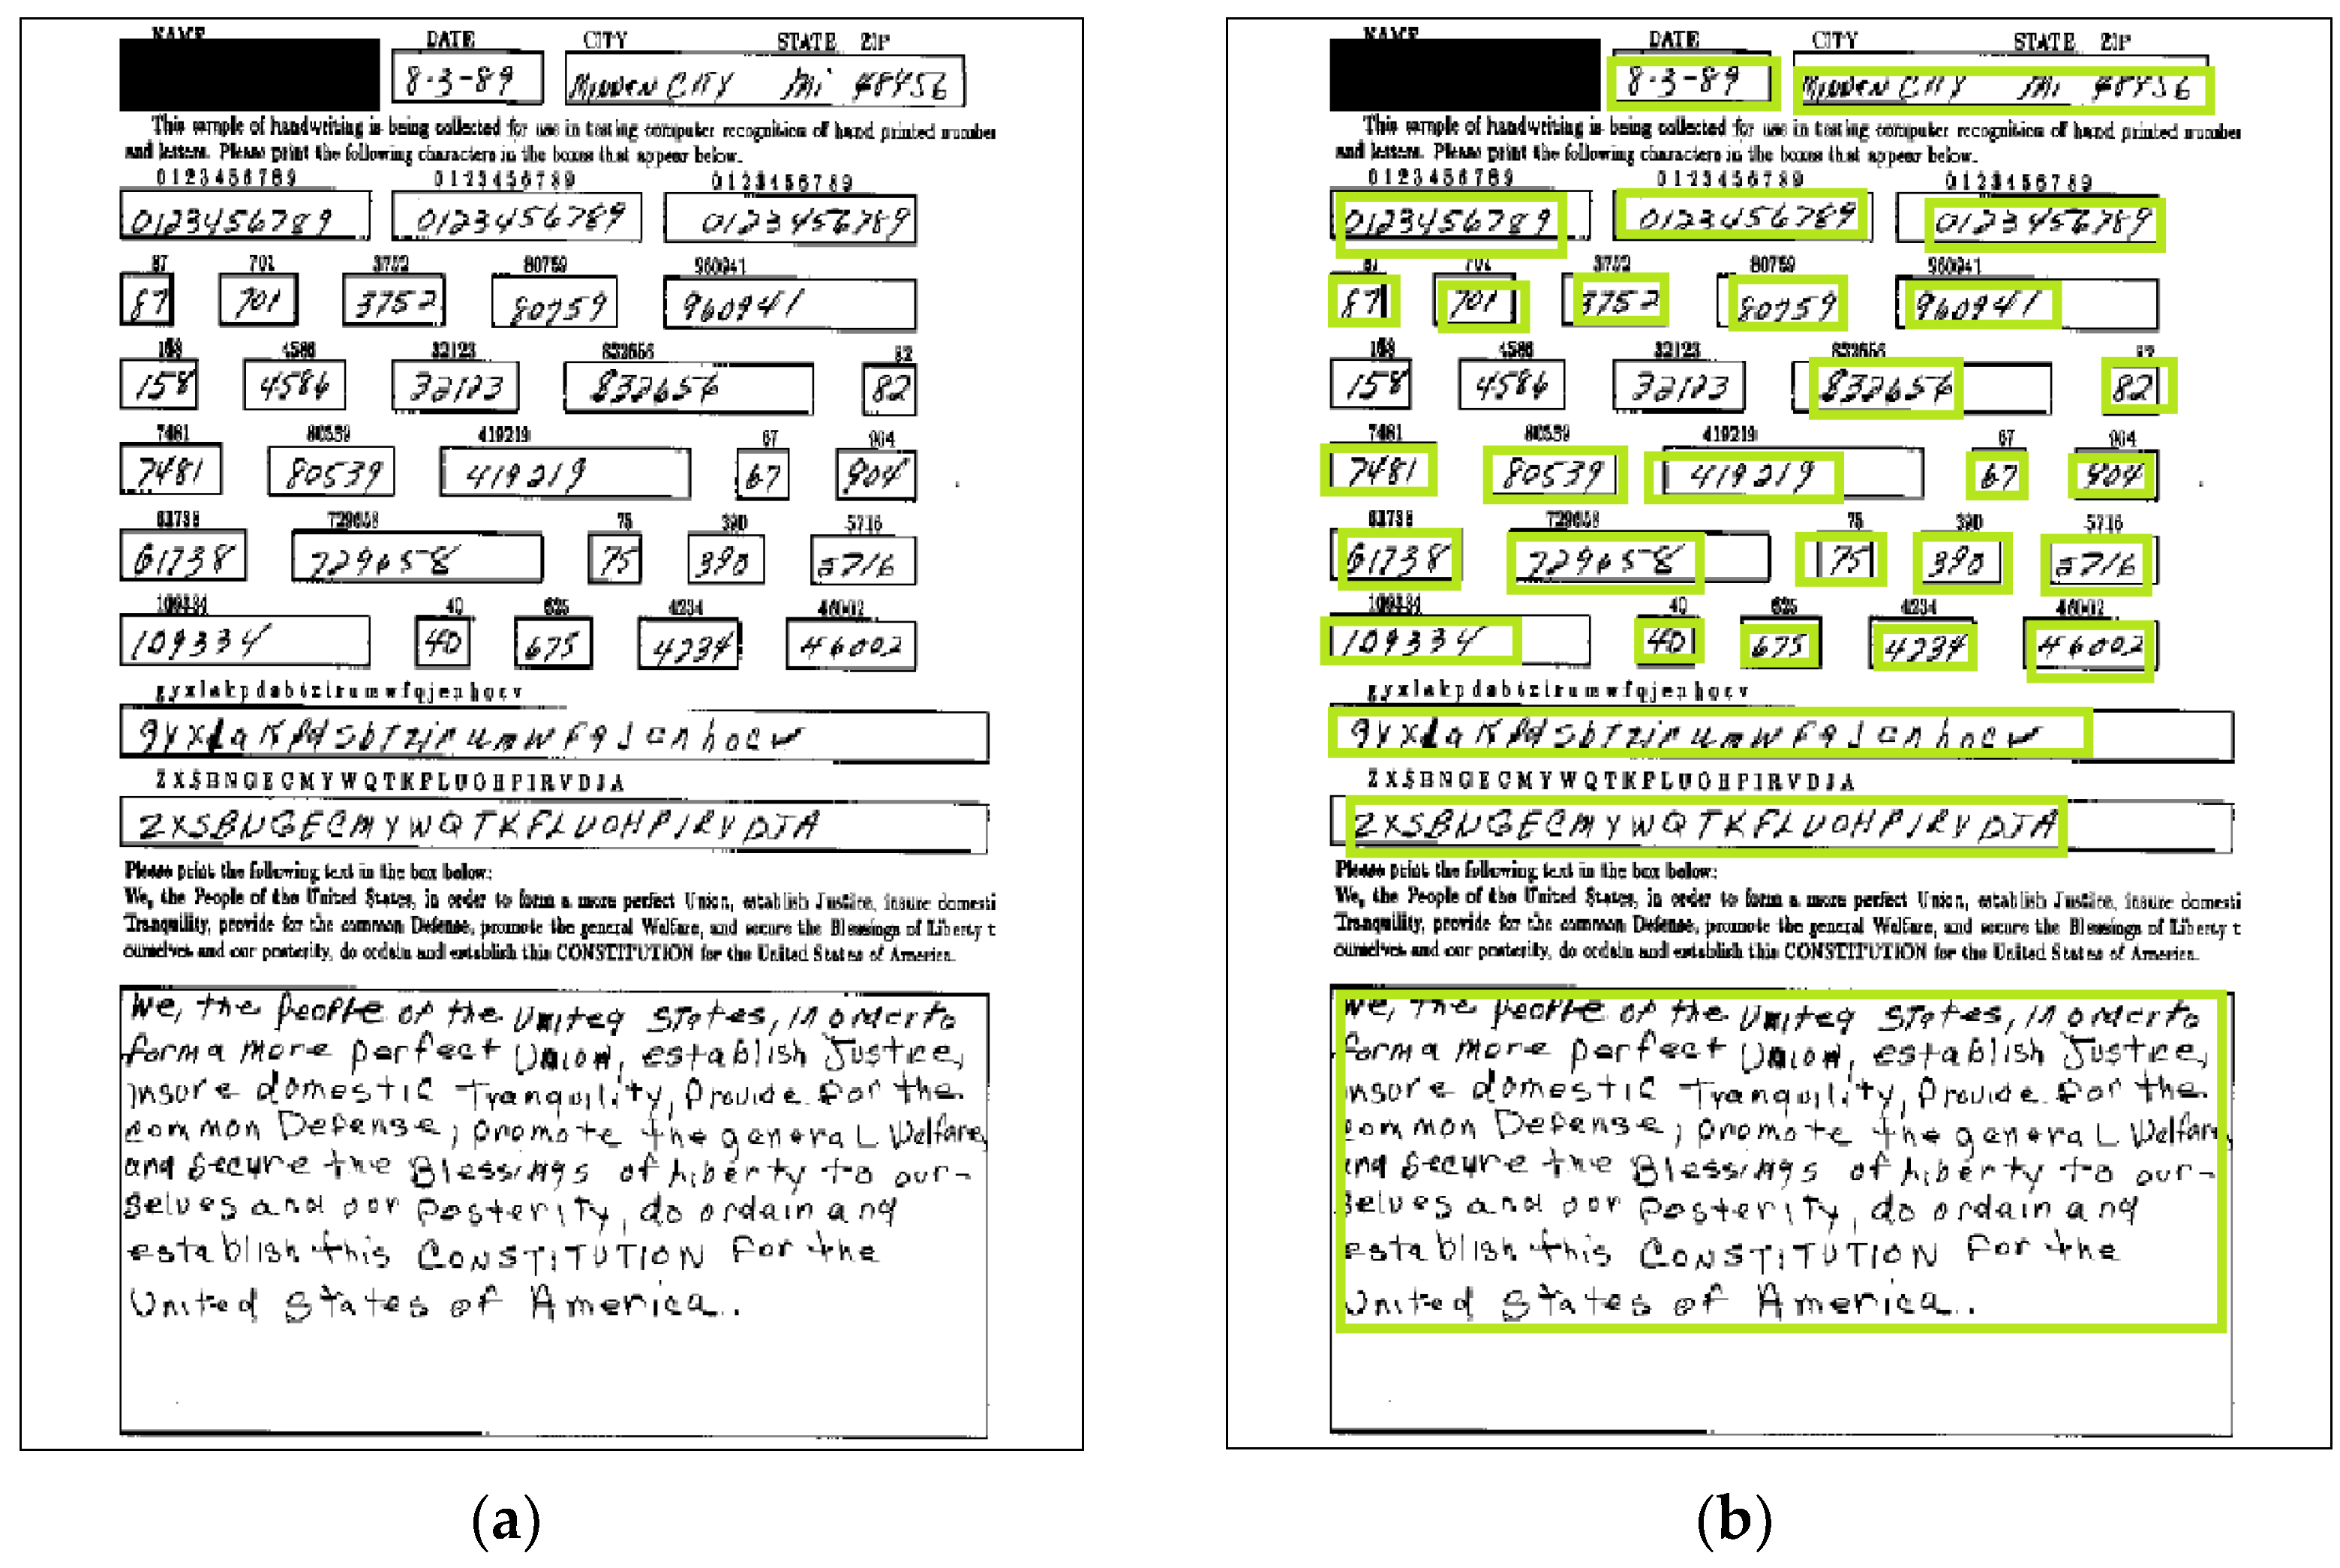 NAME DATE CITY STATE ZIP
8-3-89 MINDEN CITY Mi 48456
This sample of handwriting is being collected for use in testing computer recognition of hand printed number
and letters. Please print the following characters in the boxes that appear below.
0123456789 0123456789 0123456789
0123456789 0123456789 0123456789
87 701 3752 80759 960941
87 701 3752 80759 960941
158 4586 32123 832656 82
158 4586 32123 832656 82
7481 80539 419219 67 904
7481 80539 419219 67 904
61738 729658 75 390 5716
61738 729658 75 390 5716
109334 40 625 4234 46002
109334 40 675 4234 46002
gyxlakpdsbtzirumwfqjenhocv
gyxlqKPdSbTzirumwFqJenhocv
ZXSBNGECMYWQTKFLUOHPIRVDJA
ZXSBNGECMYWQTKFLUOHPIRVDJA
Please print the following text in the box below:
We, the People of the United States, in order to form a more perfect Union, establish Justice, insure domesti
Tranquility, provide for the common Defense, promote the general Welfare, and secure the Blessings of Liberty t
ourselves and our posterity, do ordain and establish this CONSTITUTION for the United States of America.
We, the People of the United States, in order to
form a more perfect Union, establish Justice,
insure domestic Tranquility, Provide for the
common Defense, promote the general Welfare,
and secure the Blessings of Liberty to our-
selves and our Posterity, do ordain and
establish this CONSTITUTION for the
United States of America..
(a)
NAME DATE CITY STATE ZIP
8-3-89 MINDEN CITY Mi 48456
This sample of handwriting is being collected for use in testing computer recognition of hand printed number
and letters. Please print the following characters in the boxes that appear below.
0123456789 0123456789 0123456789
0123456789 0123456789 0123456789
87 701 3752 80759 960941
87 701 3752 80759 960941
158 4586 32123 832656 82
158 4586 32123 832656 82
7481 80539 419219 67 904
7481 80539 419219 67 904
61738 729658 75 390 5716
61738 729658 75 390 5716
109334 40 625 4234 46002
109334 40 675 4234 46002
gyxlakpdsbtzirumwfqjenhocv
gyxlqKPdSbTzirumwFqJenhocv
ZXSBNGECMYWQTKFLUOHPIRVDJA
ZXSBNGECMYWQTKFLUOHPIRVDJA
Please print the following text in the box below:
We, the People of the United States, in order to form a more perfect Union, establish Justice, insure domesti
Tranquility, provide for the common Defense, promote the general Welfare, and secure the Blessings of Liberty t
ourselves and our posterity, do ordain and establish this CONSTITUTION for the United States of America.
We, the People of the United States, in order to
forma more perfect Union, establish Justice,
insure domestic Tranquility, Provide for the
common Defense, promote the general Welfare,
and secure the Blessings of Liberty to our-
selves and our Posterity, do ordain and
establish this CONSTITUTION for the
United States of America..
(b)